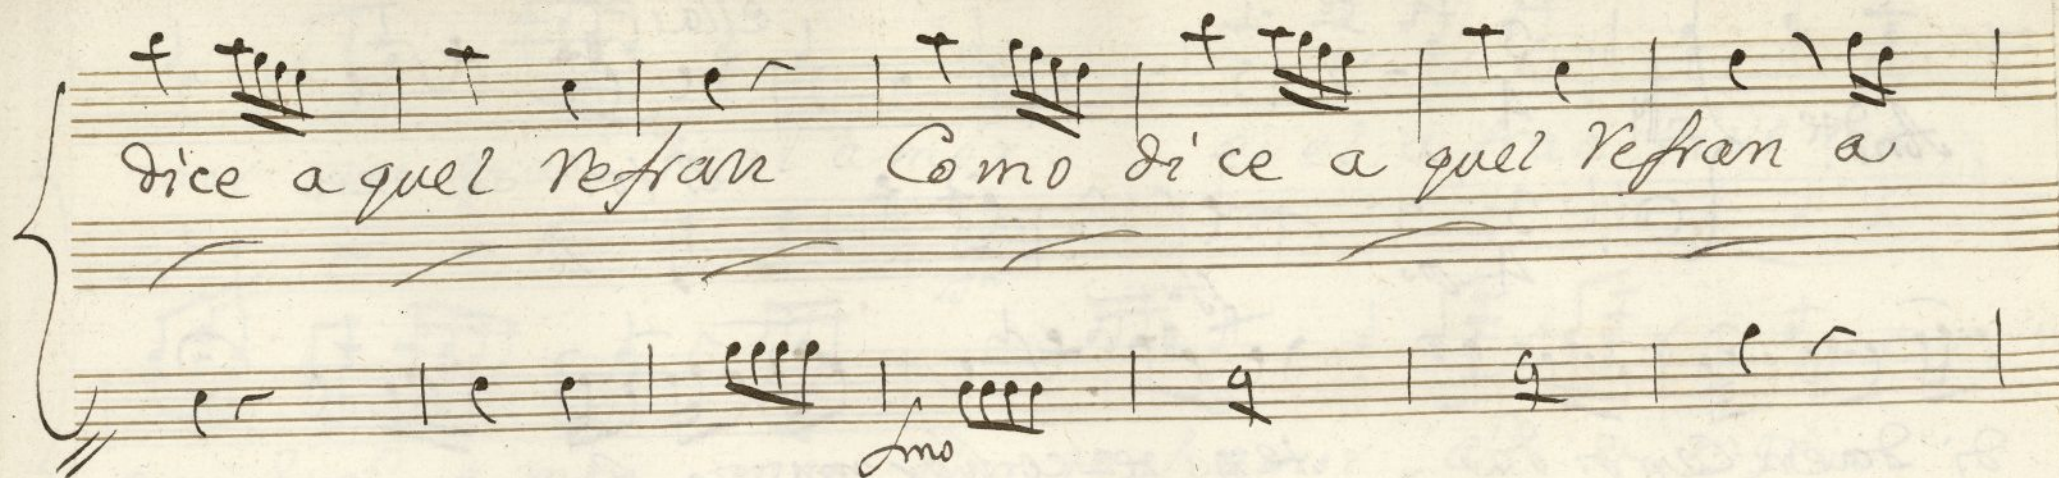 dice a quel refran Como di ce a quel refran a
fmo